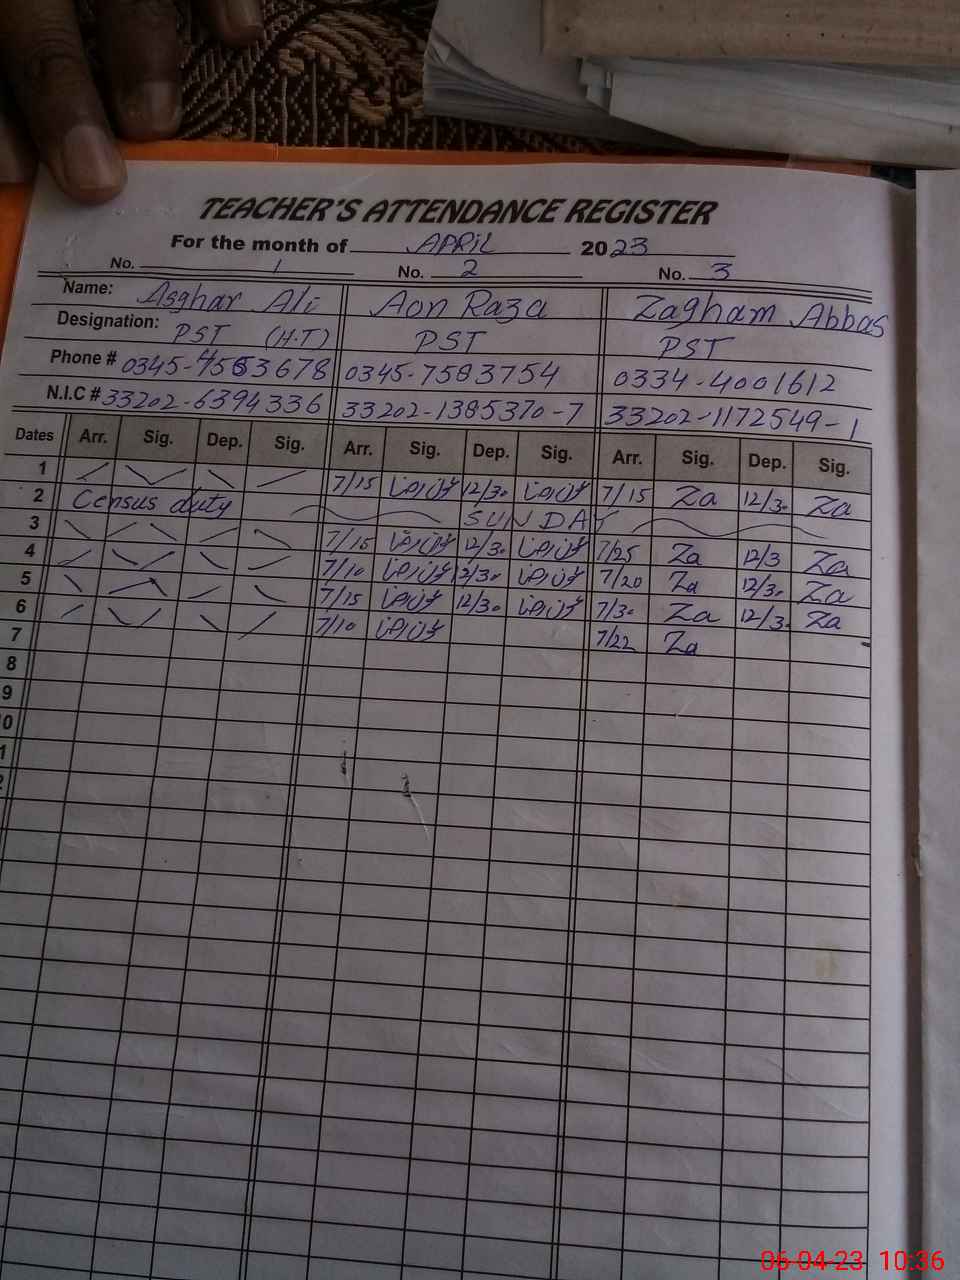 TEACHER'S ATTENDANCE REGISTER
For the month of APRIL 2023
No. 1 No. 2 No. 3
Name: Asghar Ali Aon Raza Zagham Abbas
Designation: PST (H.T) PST PST
Phone # 0345-7583754 0334-4001612
N.I.C # 33202-6394336 33202-1385370-7 33202-1172549-1
Dates Arr. Sig. Dep. Sig. Arr. Sig. Dep. Sig. Arr. Sig. Dep. Sig.
1 7/15 12/30 7/15 Za 12/30 Za
2 Census duty SUNDAY
3 7/15 12/30 7/25 Za 12/3 Za
4 7/10 12/30 7/20 Za 12/30 Za
5 7/15 12/30 7/30 Za 12/30 Za
6 7/10 7/22 Za
7
8
9
10
06-04-23 10:36